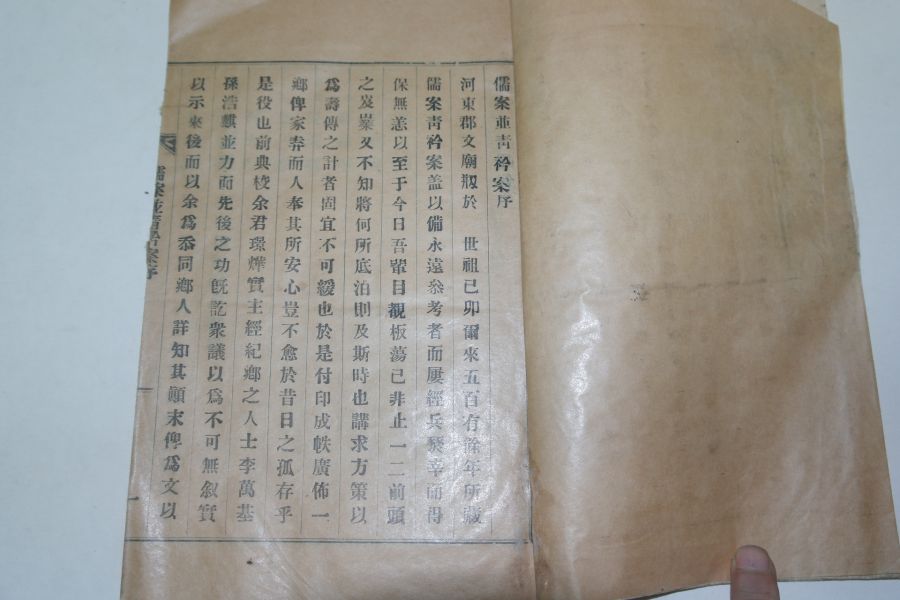 儒案並靑衿案序
河東郡文廟刱於 世祖己卯爾來五百有餘年所藏
儒案靑衿案盖以備永遠叅考者而屢經兵燹幸而得
保無恙以至于今日吾輩目覩板蕩已非止一二前頭
之岌嶪又不知將何所底泊則及斯時也講求方策以
爲壽傳之計者固宜不可緩也於是付印成帙廣佈一
鄕俾家弆而人奉其所安心豈不愈於昔日之孤存乎
是役也前典校余君璟燁實主經紀鄕之人士李萬基
孫浩麒並力而先後之功旣訖衆議以爲不可無叙實
以示來後而以余爲忝同鄕人詳知其顚末俾爲文以
儒案並靑衿案序
一